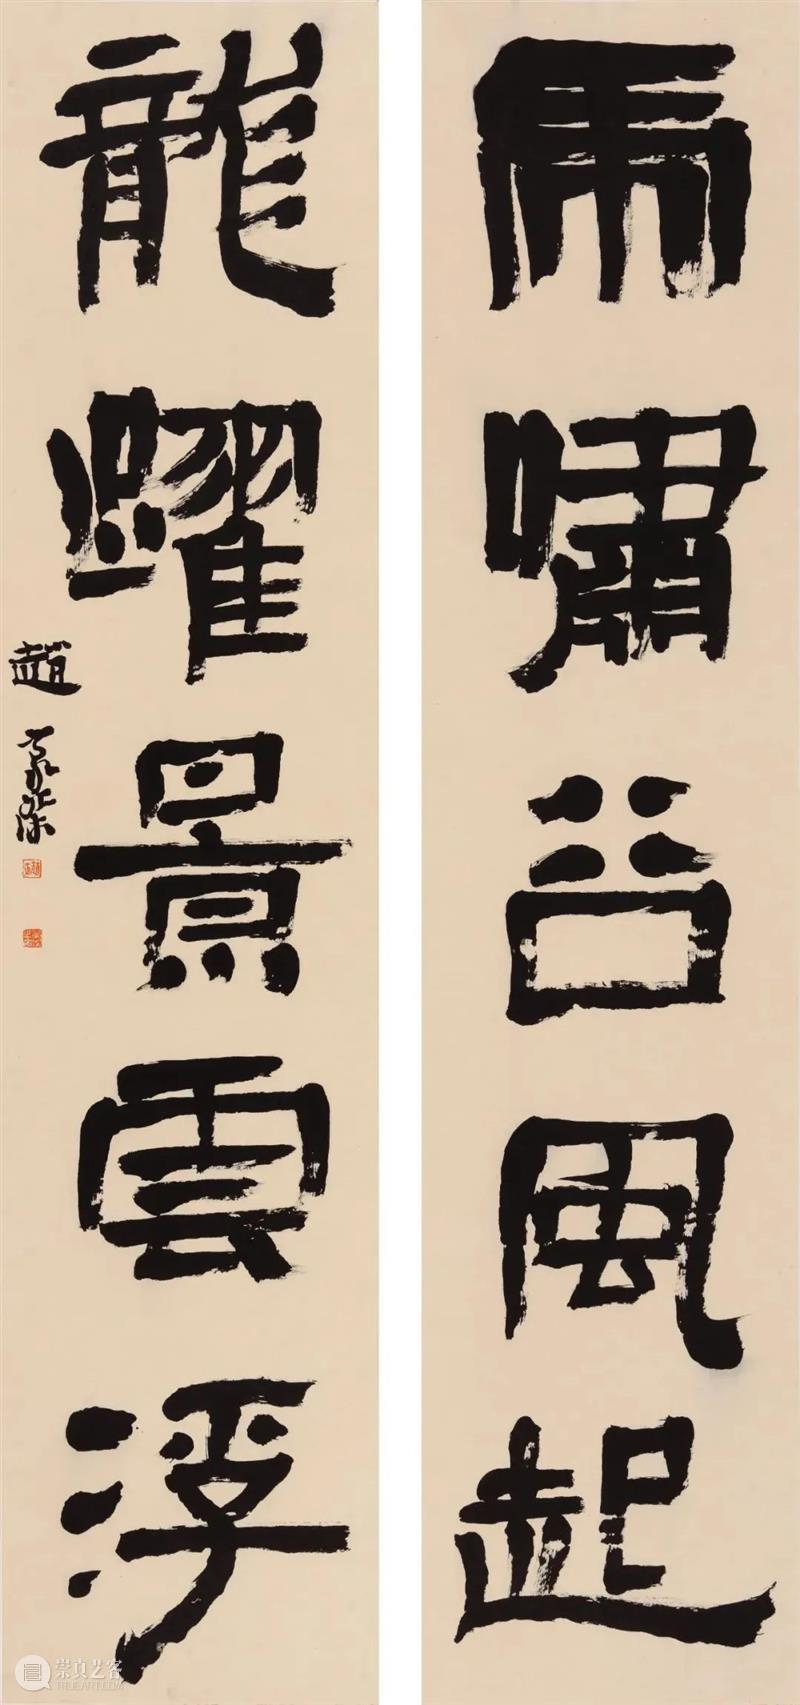 虎嘯谷風起
龍躍景雲浮
趙
崇真艺客
TRUEART.COM